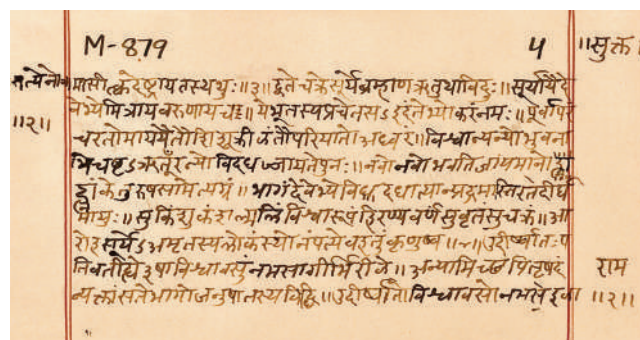 M-879
५
॥सुक्त
मासीत्क्वदेष्ट्रायतस्थथुः॥३॥द्वेतेचक्रेसूर्येब्रह्माणऋतुथाविदुः॥सूर्यायैदे
वेभ्योमित्रायवरुणायच॥येभूतस्यप्रचेतसऽइदंतेभ्योकरंनमः॥पूर्वापरं
॥२॥
चरतोमाययैतौशिशूक्रीळंतौपरियातोअध्वरं॥विश्वान्यन्योभुवना
भिचष्टऽऋतूँरन्योविदधज्जायतेपुनः॥नवोनवोभवतिजायमानो
ह्नांकेतुरुषसामेत्यग्रं॥भागंदेवेभ्योविदधात्यान्प्रचंद्रमास्तिरतेदीर्घ
मायुः॥सुकिंशुकंशल्मलिंविश्वरूपंहिरण्यवर्णंसुवृतंसुचक्रं॥आ
रोहसूर्येऽअमृतस्यलोकंस्योनंपत्येवहतुंकृणुष्व॥४॥उदीर्ष्वातःप
तिवतीह्ये३षाविश्वावसुंनमसागीर्भिरीळे॥अन्यामिच्छपितृषदं
राम
व्यक्तांसतेभागोजनुषातस्यविद्धि॥उदीर्ष्वातोविश्वावसोनमसेळा
॥२॥